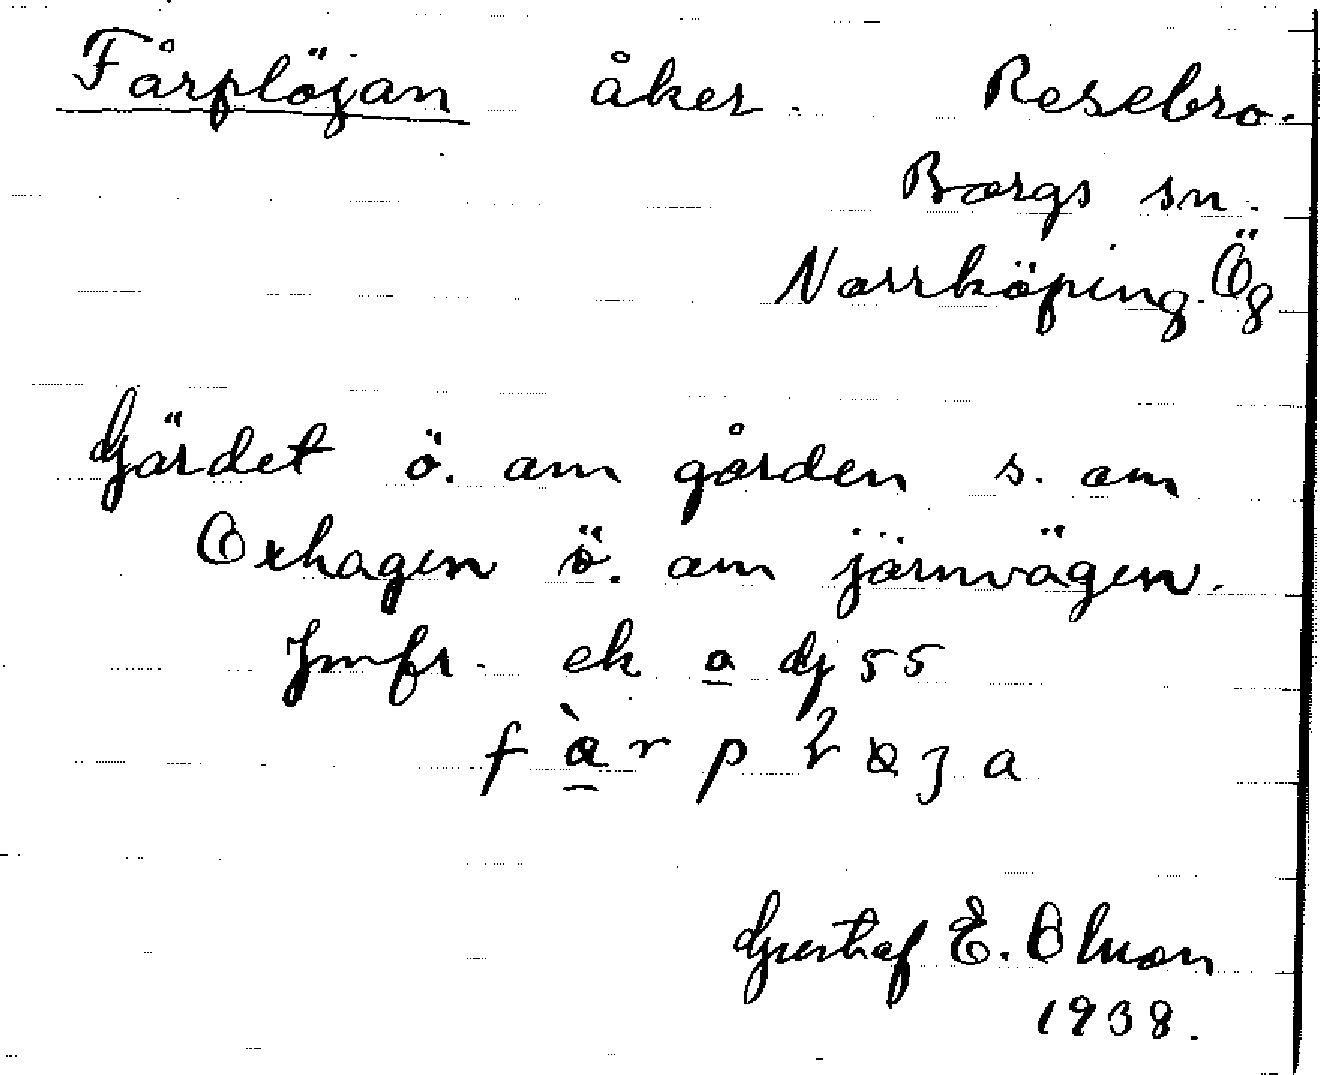 Fårplöjan åker. Resebro.
Borgs sn.
Norrköping. Ög
Gärdet ö. om gården s. om
Oxhagen ö. om järnvägen.
Jmfr. ek a dj 55
f à r p l ö j a
Gustaf E. Olsson
1938.